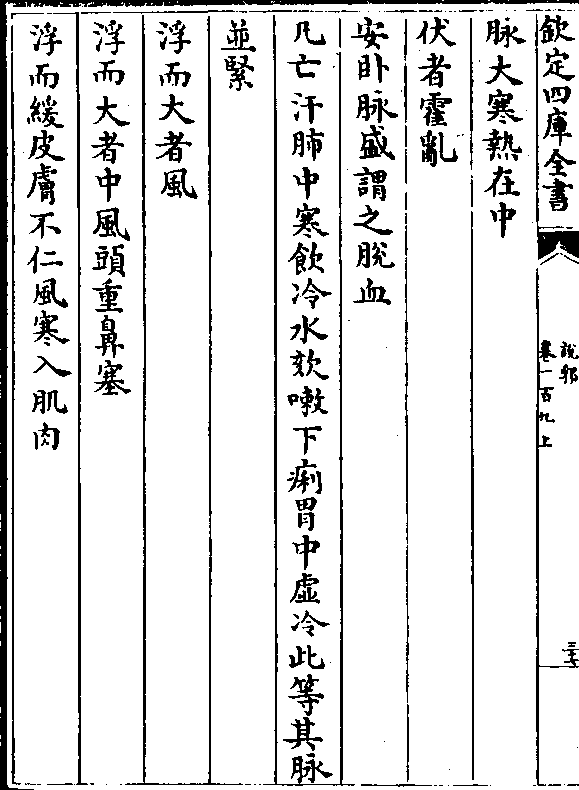 欽定四庫全書
說郛
卷一百九上
三十七
脉大寒熱在中
伏者霍亂
安卧脉盛謂之脫血
凡亡汗肺中寒飲冷水欬嗽下痢胃中虛冷此等其脉
並緊
浮而大者風
浮而大者中風頭重鼻塞
浮而緩皮膚不仁風寒入肌肉